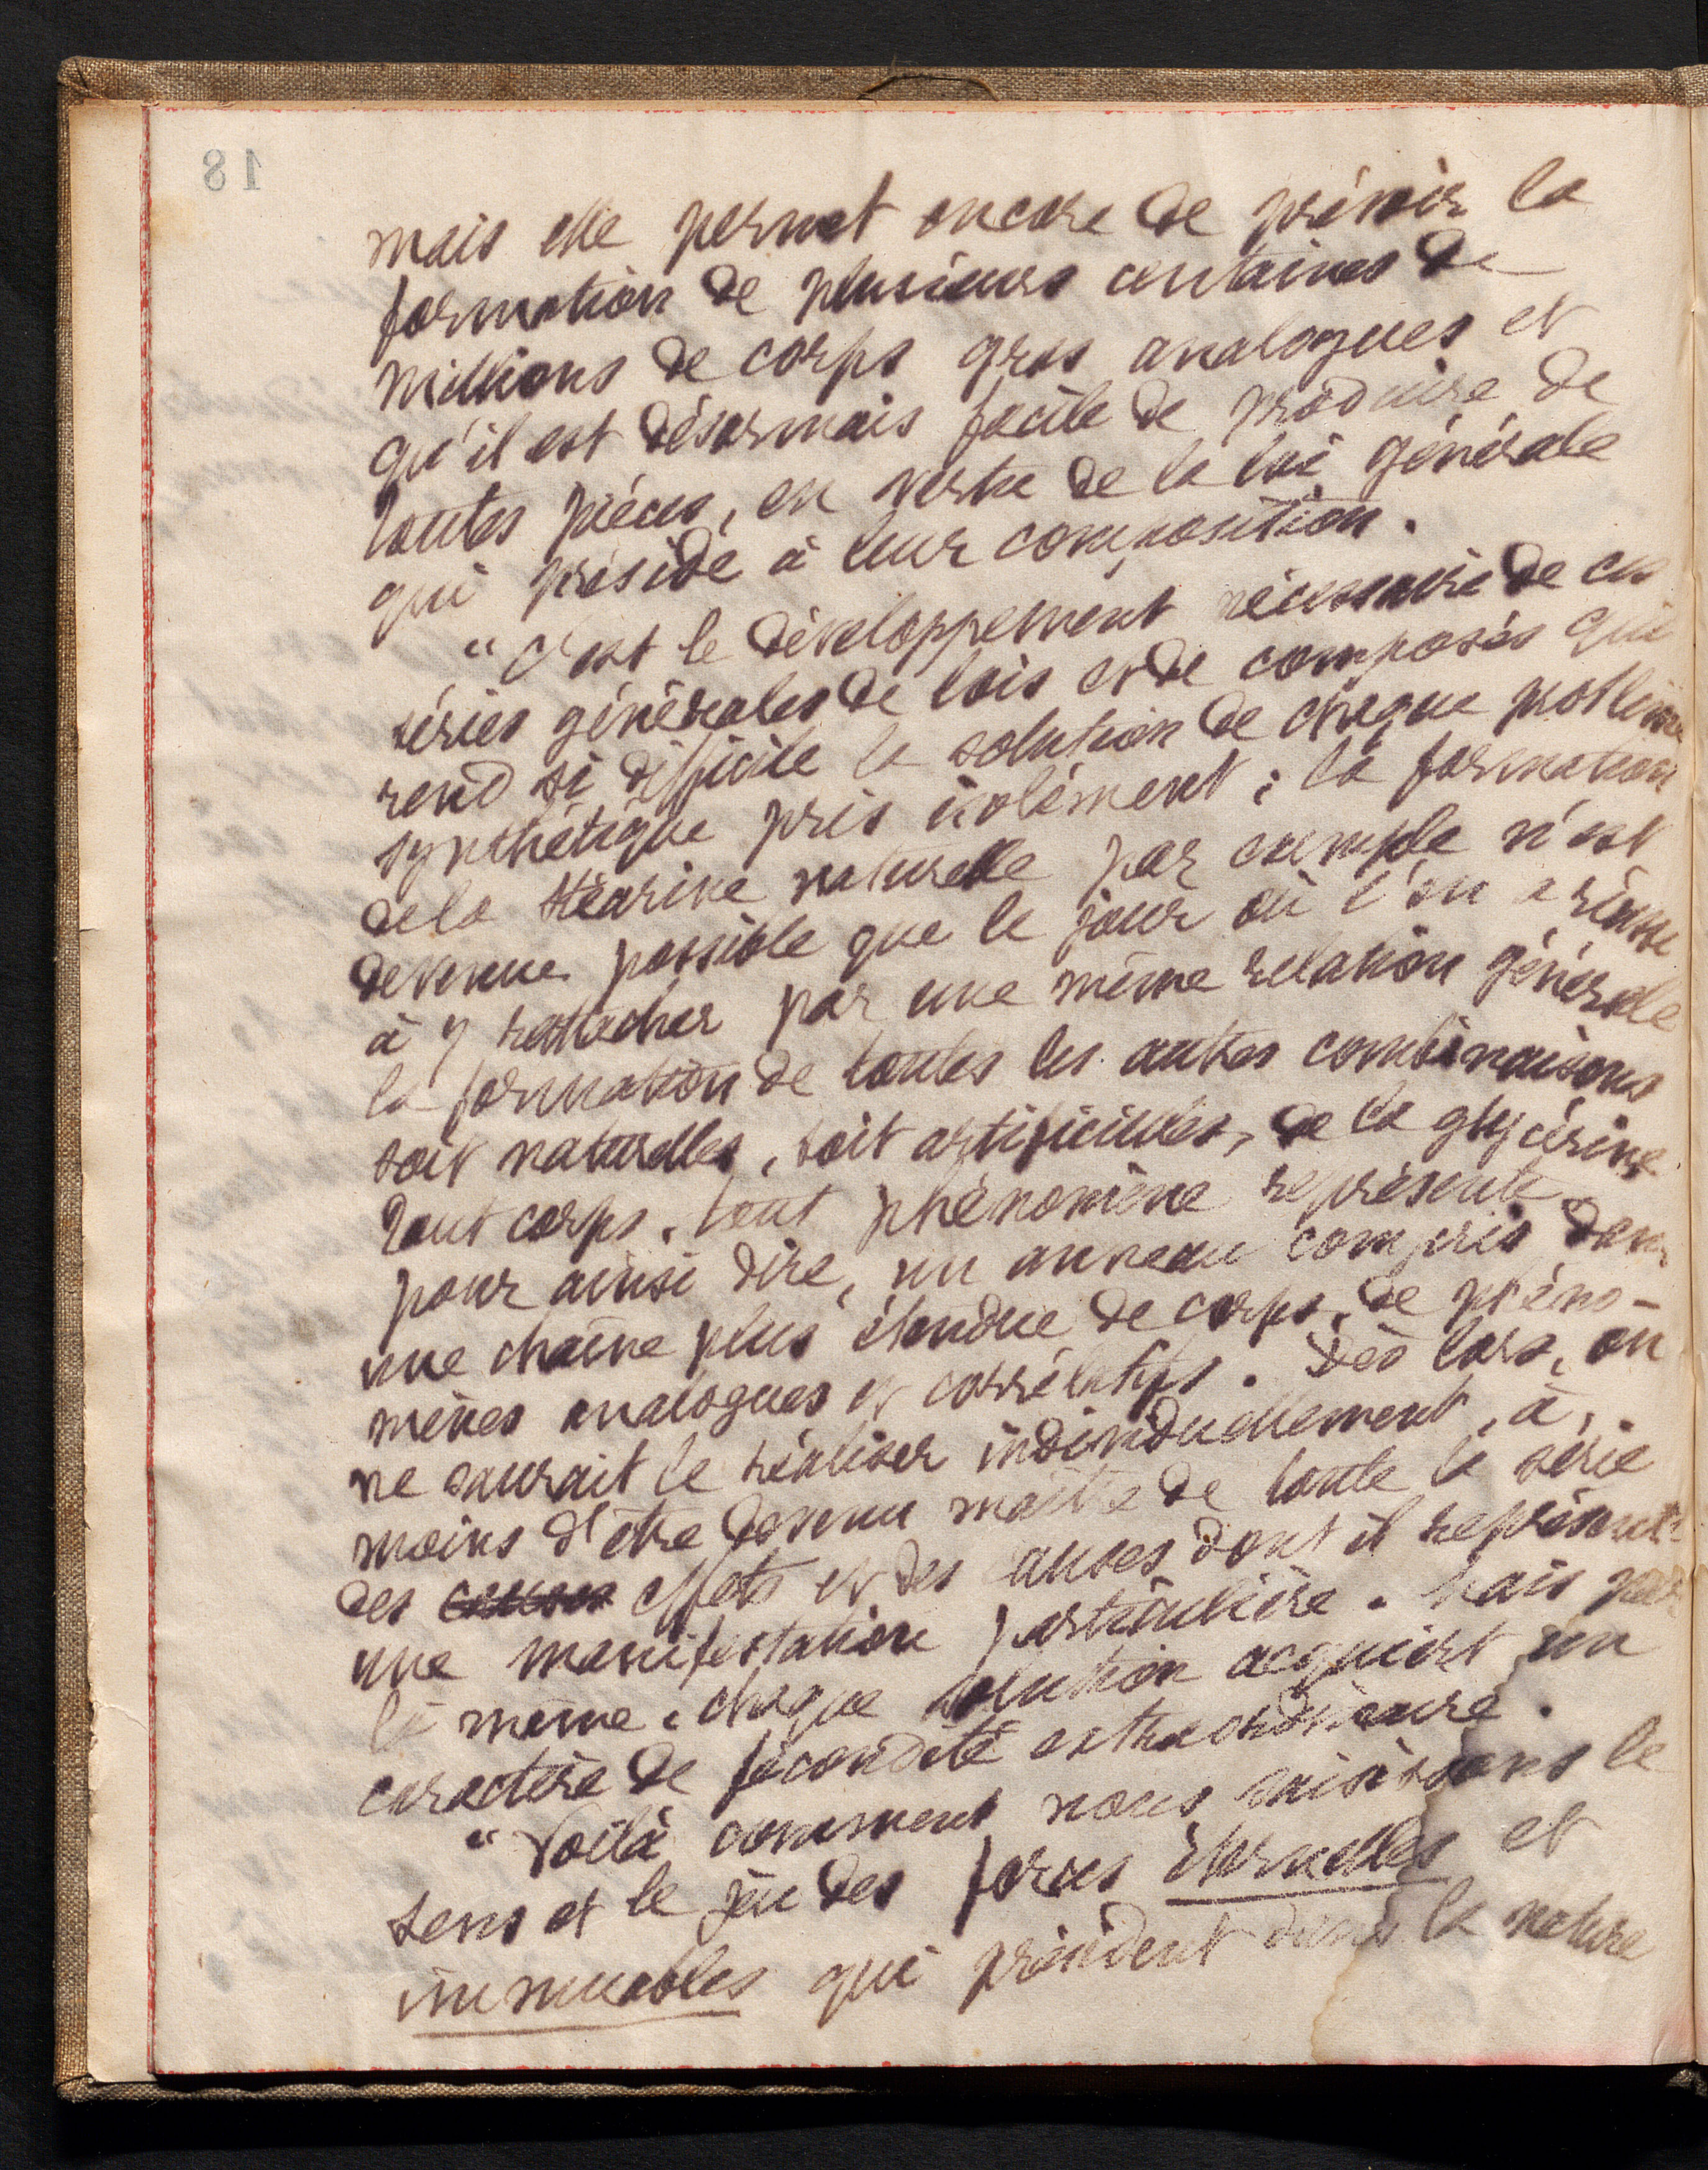 18
mais elle permet encore de prévoir la
formation de plusieurs centaines de
millions de corps gras analogues et
qu'il est désormais facile de produire de
toutes pièces, en vertu de la loi générale
qui préside à leur composition.
"C'est le développement nécessaire de ces
séries générales de lois et de composés qui
rend si difficile la solution de chaque problème
synthétique pris isolément ; la formation
de la stéarine naturelle par exemple n'est
devenue possible que le jour où l'on a réussi
à y rattacher par une même relation générale
la formation de toutes les autres combinaisons
soit naturelles, soit artificielles, de la glycérine
Tout corps, tout phénomène représente
pour ainsi dire, un anneau compris dans
une chaîne plus étendue de corps, de phéno-
mènes analogues et corrélatifs. Dès lors, on
ne saurait le réaliser individuellement, à
moins d'être devenu maître de toute la série
des causes effets et des causes dont il représente
une manifestation particulière. Mais par
là même, chaque solution acquiert un
caractère de fécondité extraordinaire.
"Voilà comment nous saisissons le
sens et le jeu des forces éternelles et
immuables qui président dans la nature